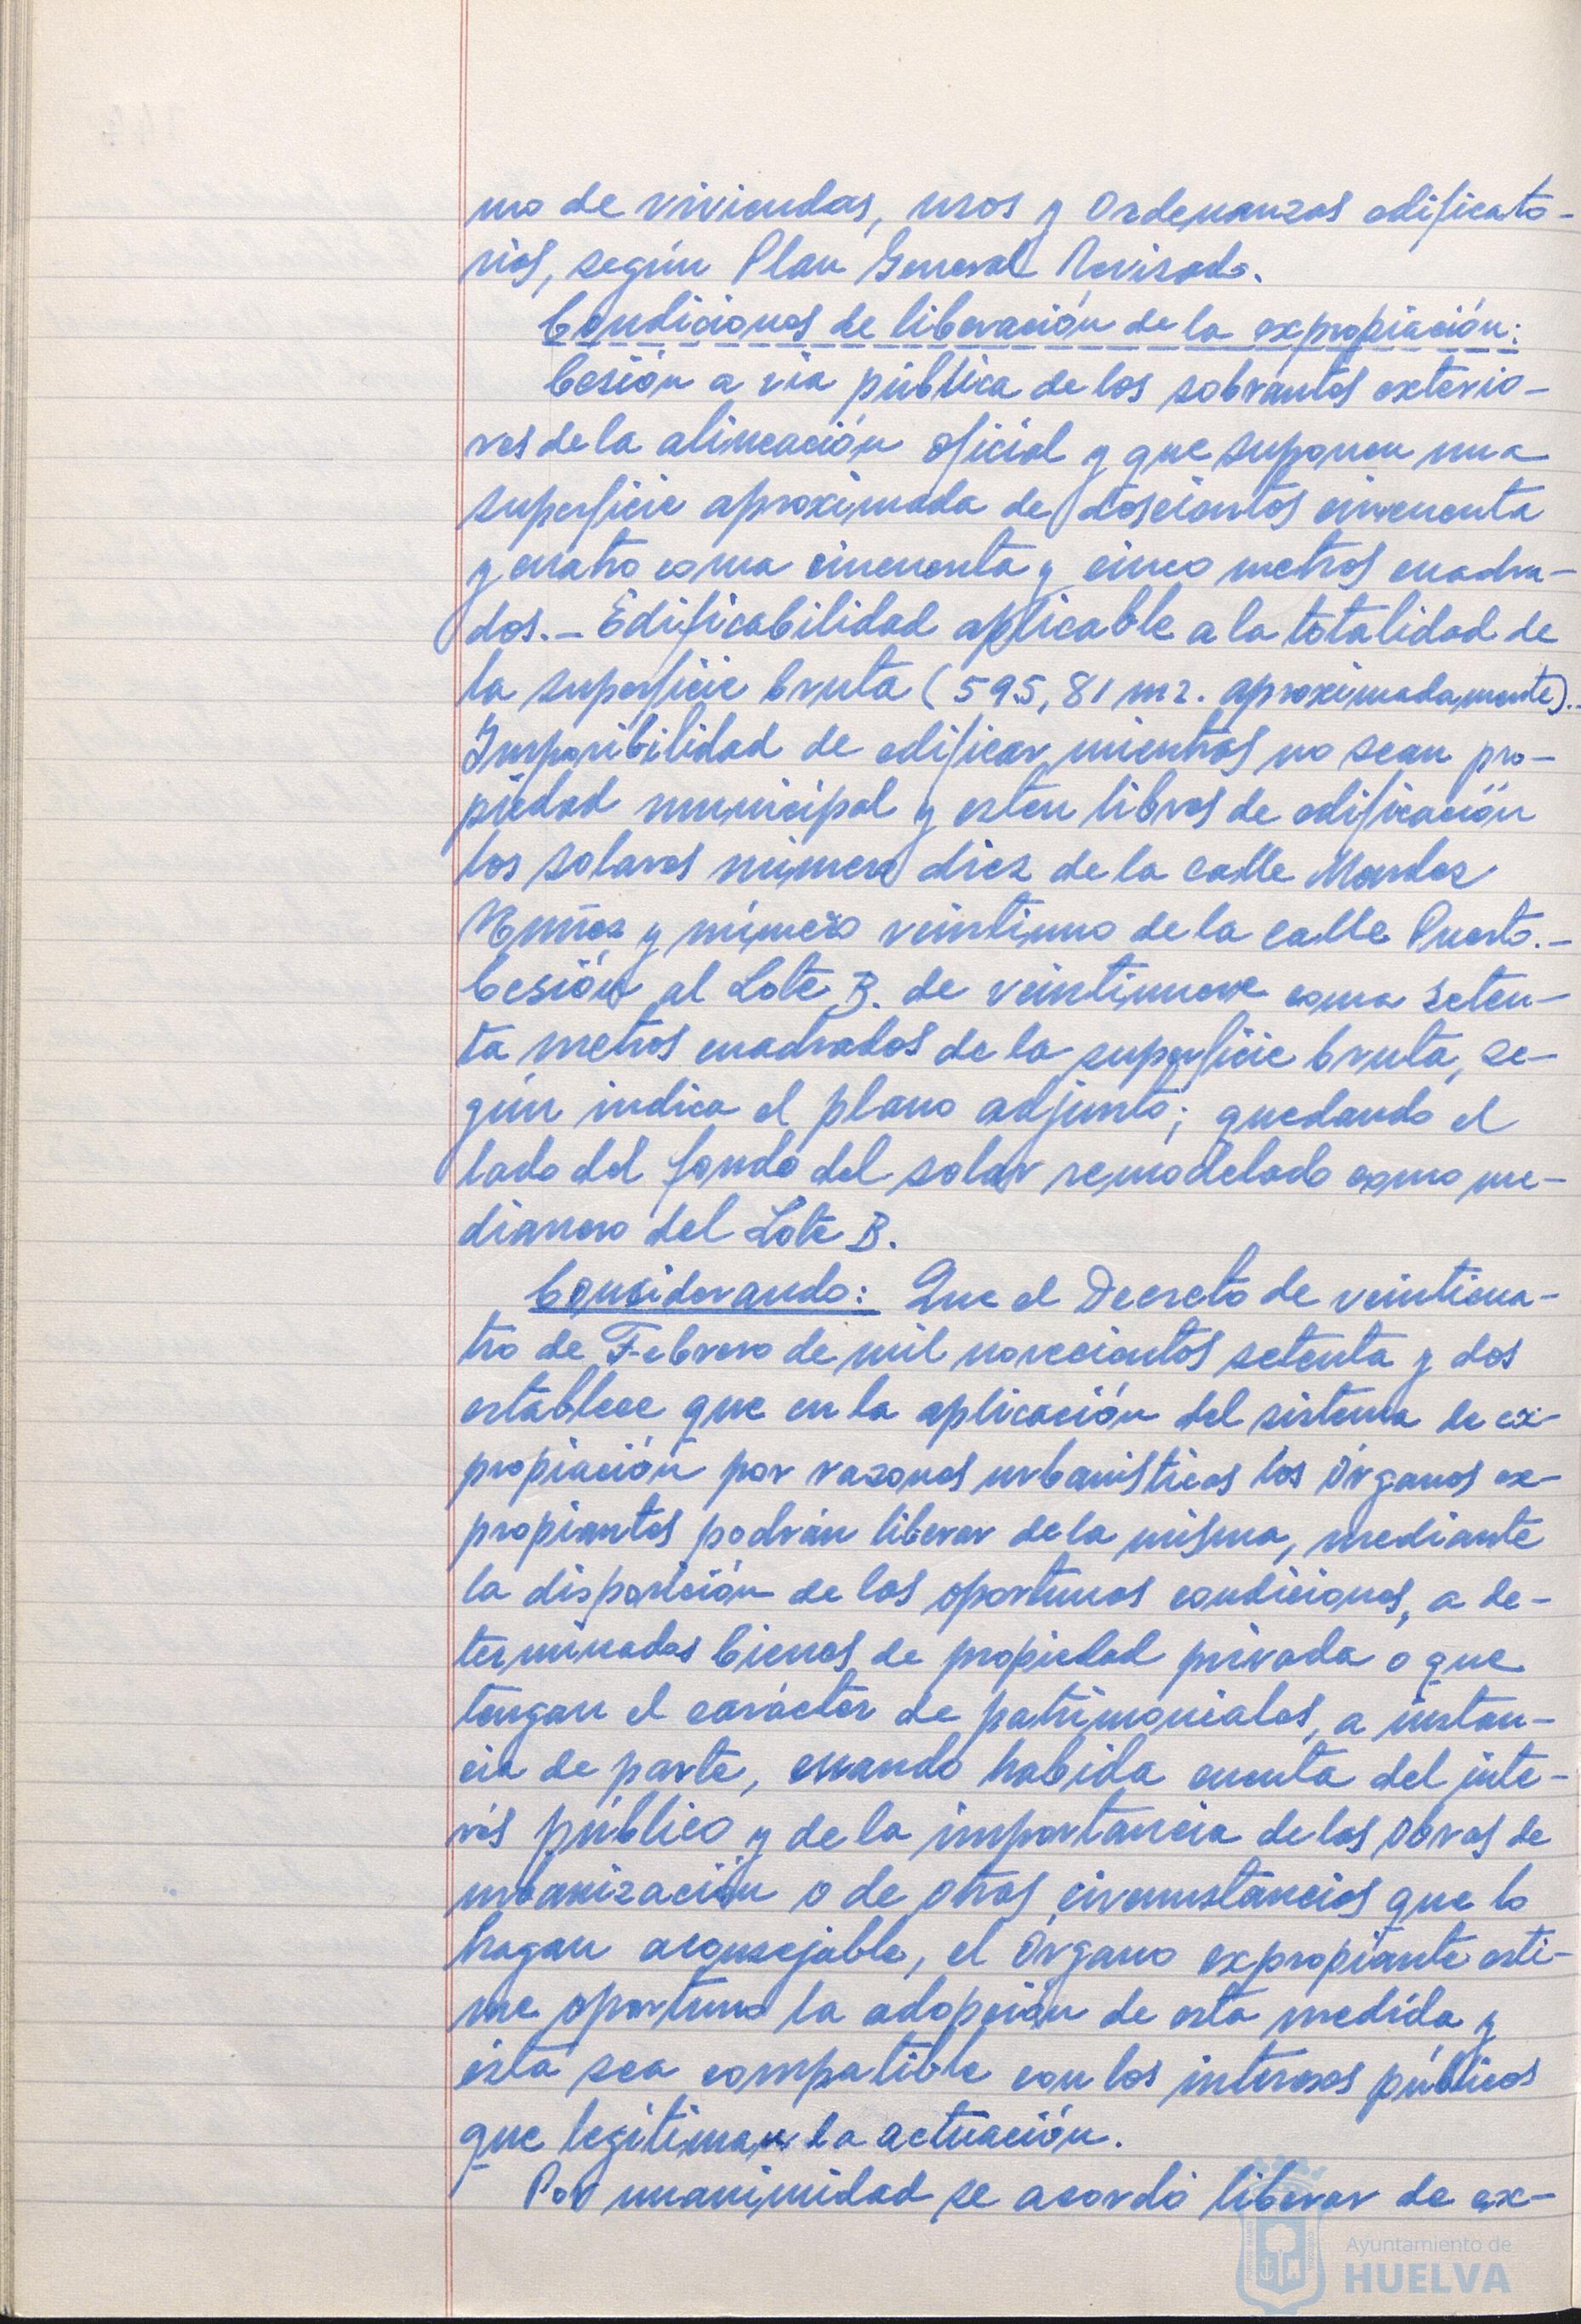 mo de viviendas, usos y Ordenanzas edificato-
rias, según Plan General Revisado.
Condiciones de liberación de la expropiación:
Cesión a via pública de los sobrantes exterio-
res de la alineación oficial y que suponen una
superficie aproximada de doscientos cincuenta
y cuatro coma cincuenta y cinco metros cuadra-
dos.- Edificabilidad aplicable a la totalidad de
la superficie bruta (595,81 m2. aproximadamente).-
Imposibilidad de edificar mientras no sean pro-
piedad municipal y esten libres de edificación
los solares número diez de la calle Mendez
Nuñez y número veintiuno de la calle Puerto.-
Cesión al Lote B. de veintinueve coma seten-
ta metros cuadrados de la superficie bruta, se-
gún indica el plano adjunto; quedando el
lado del fondo del solar remodelado como me-
dianero del Lote B.
Considerando: Que el Decreto de veinticua-
tro de Febrero de mil novecientos setenta y dos
establece que en la aplicación del sistema de ex-
propiación por razones urbanisticas los órganos ex-
propiantes podrán liberar de la misma, mediante
la disposición de las oportunas condiciones, a de-
terminados bienes de propiedad privada o que
tengan el carácter de patrimoniales, a instan-
cia de parte, cuando habida cuenta del inte-
rés público y de la importancia de las obras de
urbanización o de otras circunstancias que lo
hagan aconsejable, el Organo expropiante esti-
me oportuno la adopción de esta medida y
ésta sea compatible con los intereses públicos
que legitiman la actuación.
Por unanimidad se acordó liberar de ex-
Ayuntamiento de
HUELVA